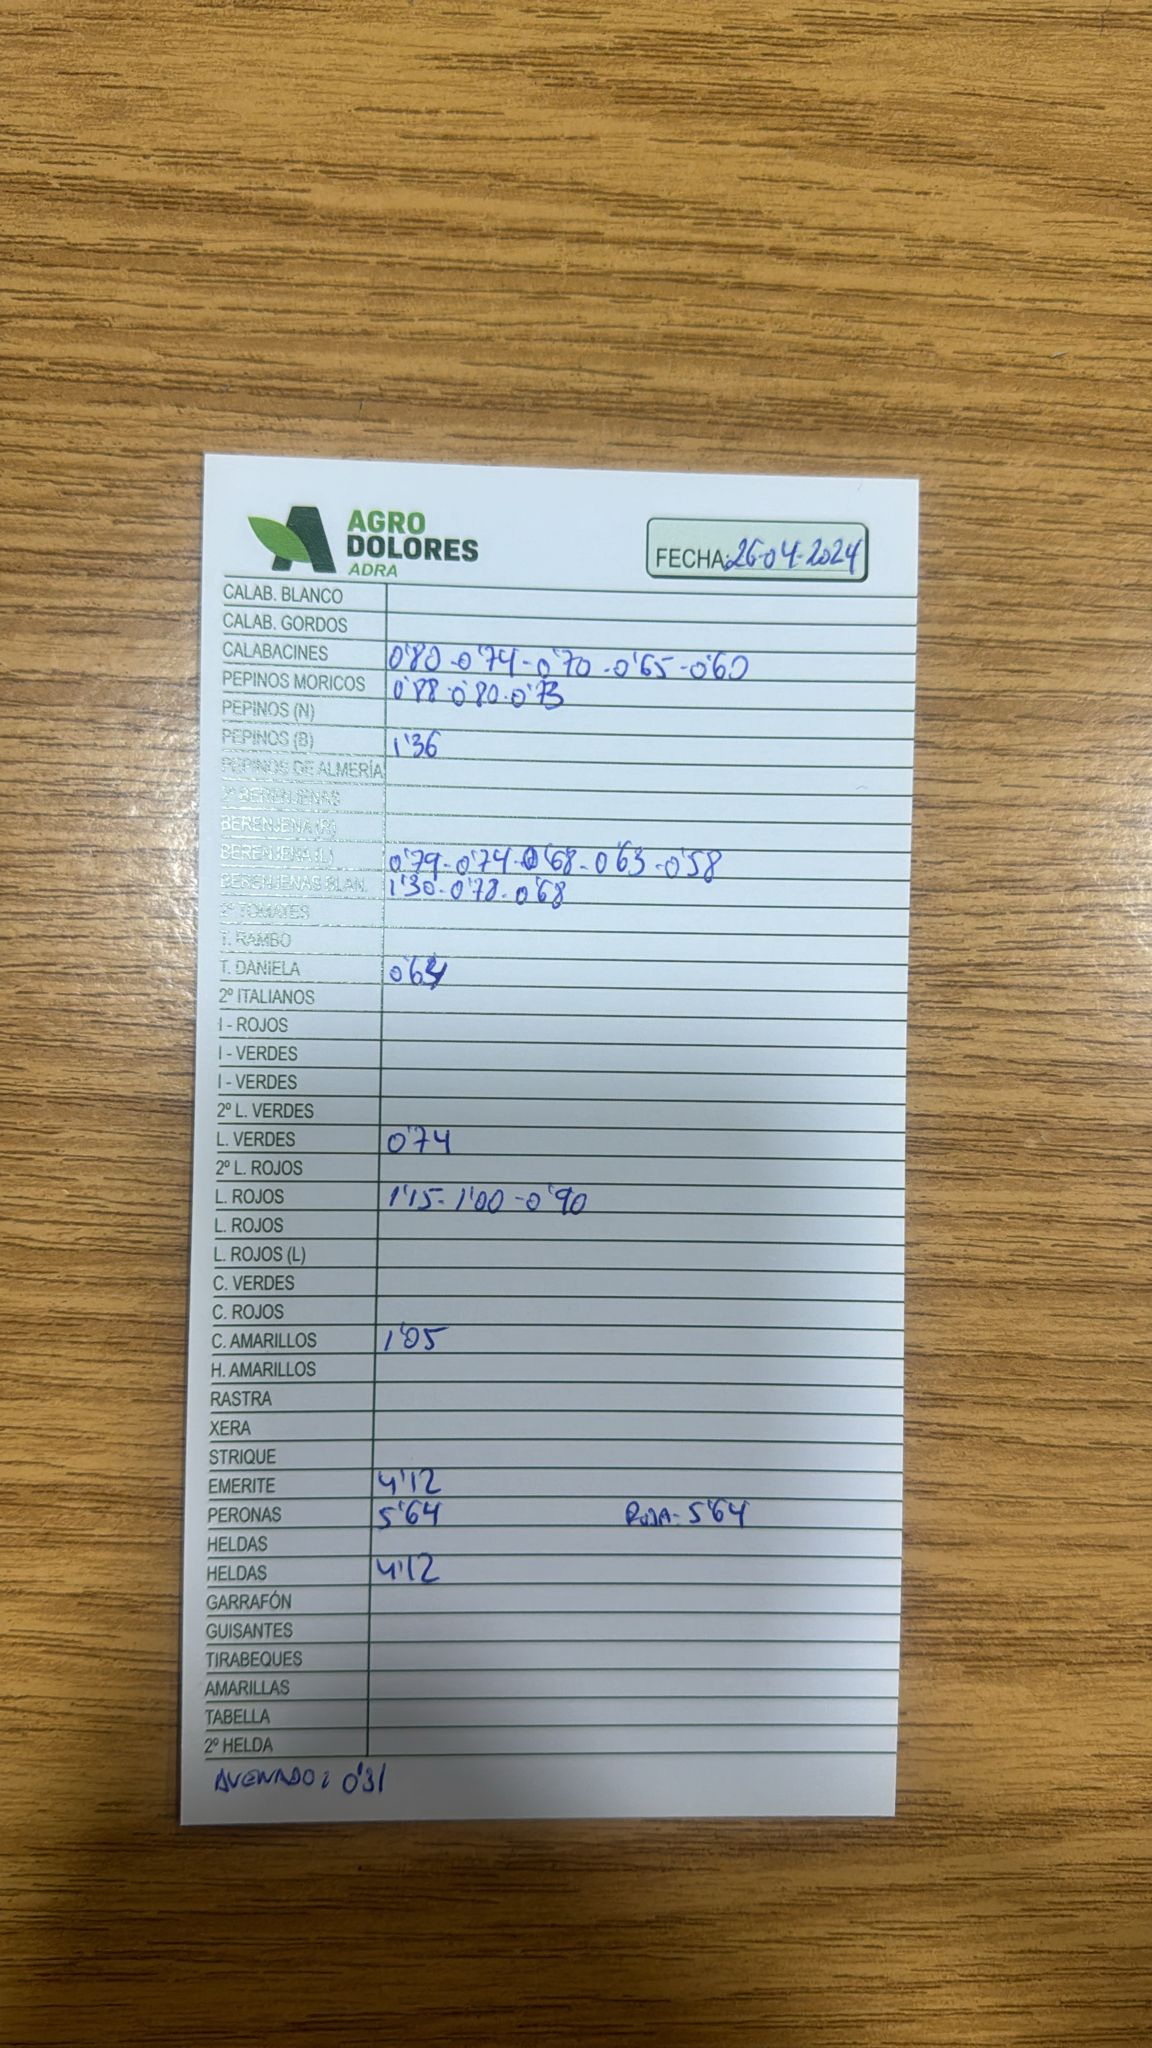 AGRO
DOLORES
ADRA
FECHA: 26-04-2024
CALAB. BLANCO
CALAB. GORDOS
CALABACINES 0'80-0'74-0'70-0'65-0'60
PEPINOS MORICOS 0'88-0'80-0'73
PEPINOS (N)
PEPINOS (B) 1'36
PEPINOS DE ALMERÍA
2ª BERENJENAS
BERENJENA (R)
BERENJENA (L) 0'79-0'74-0'68-0'63-0'58
BERENJENAS BLAN. 1'30-0'78-0'68
2º TOMATES
T. RAMBO
T. DANIELA
2º ITALIANOS
I - ROJOS
I - VERDES
I - VERDES
2º L. VERDES
L. VERDES 0'74
2º L. ROJOS
L. ROJOS 1'15-1'00-0'90
L. ROJOS
L. ROJOS (L)
C. VERDES
C. ROJOS
C. AMARILLOS 1'05
H. AMARILLOS
RASTRA
XERA
STRIQUE
EMERITE 4'12
PERONAS 5'64 ROJA- 5'64
HELDAS
HELDAS 4'12
GARRAFÓN
GUISANTES
TIRABEQUES
AMARILLAS
TABELLA
2º HELDA
AVENADO: 0'31